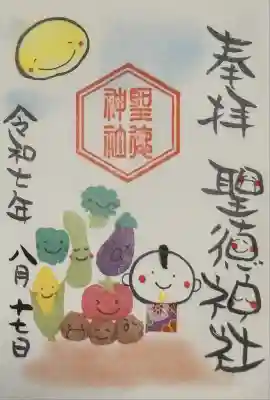 奉拝
聖徳神社
聖徳神社
令和七年 八月 十七日